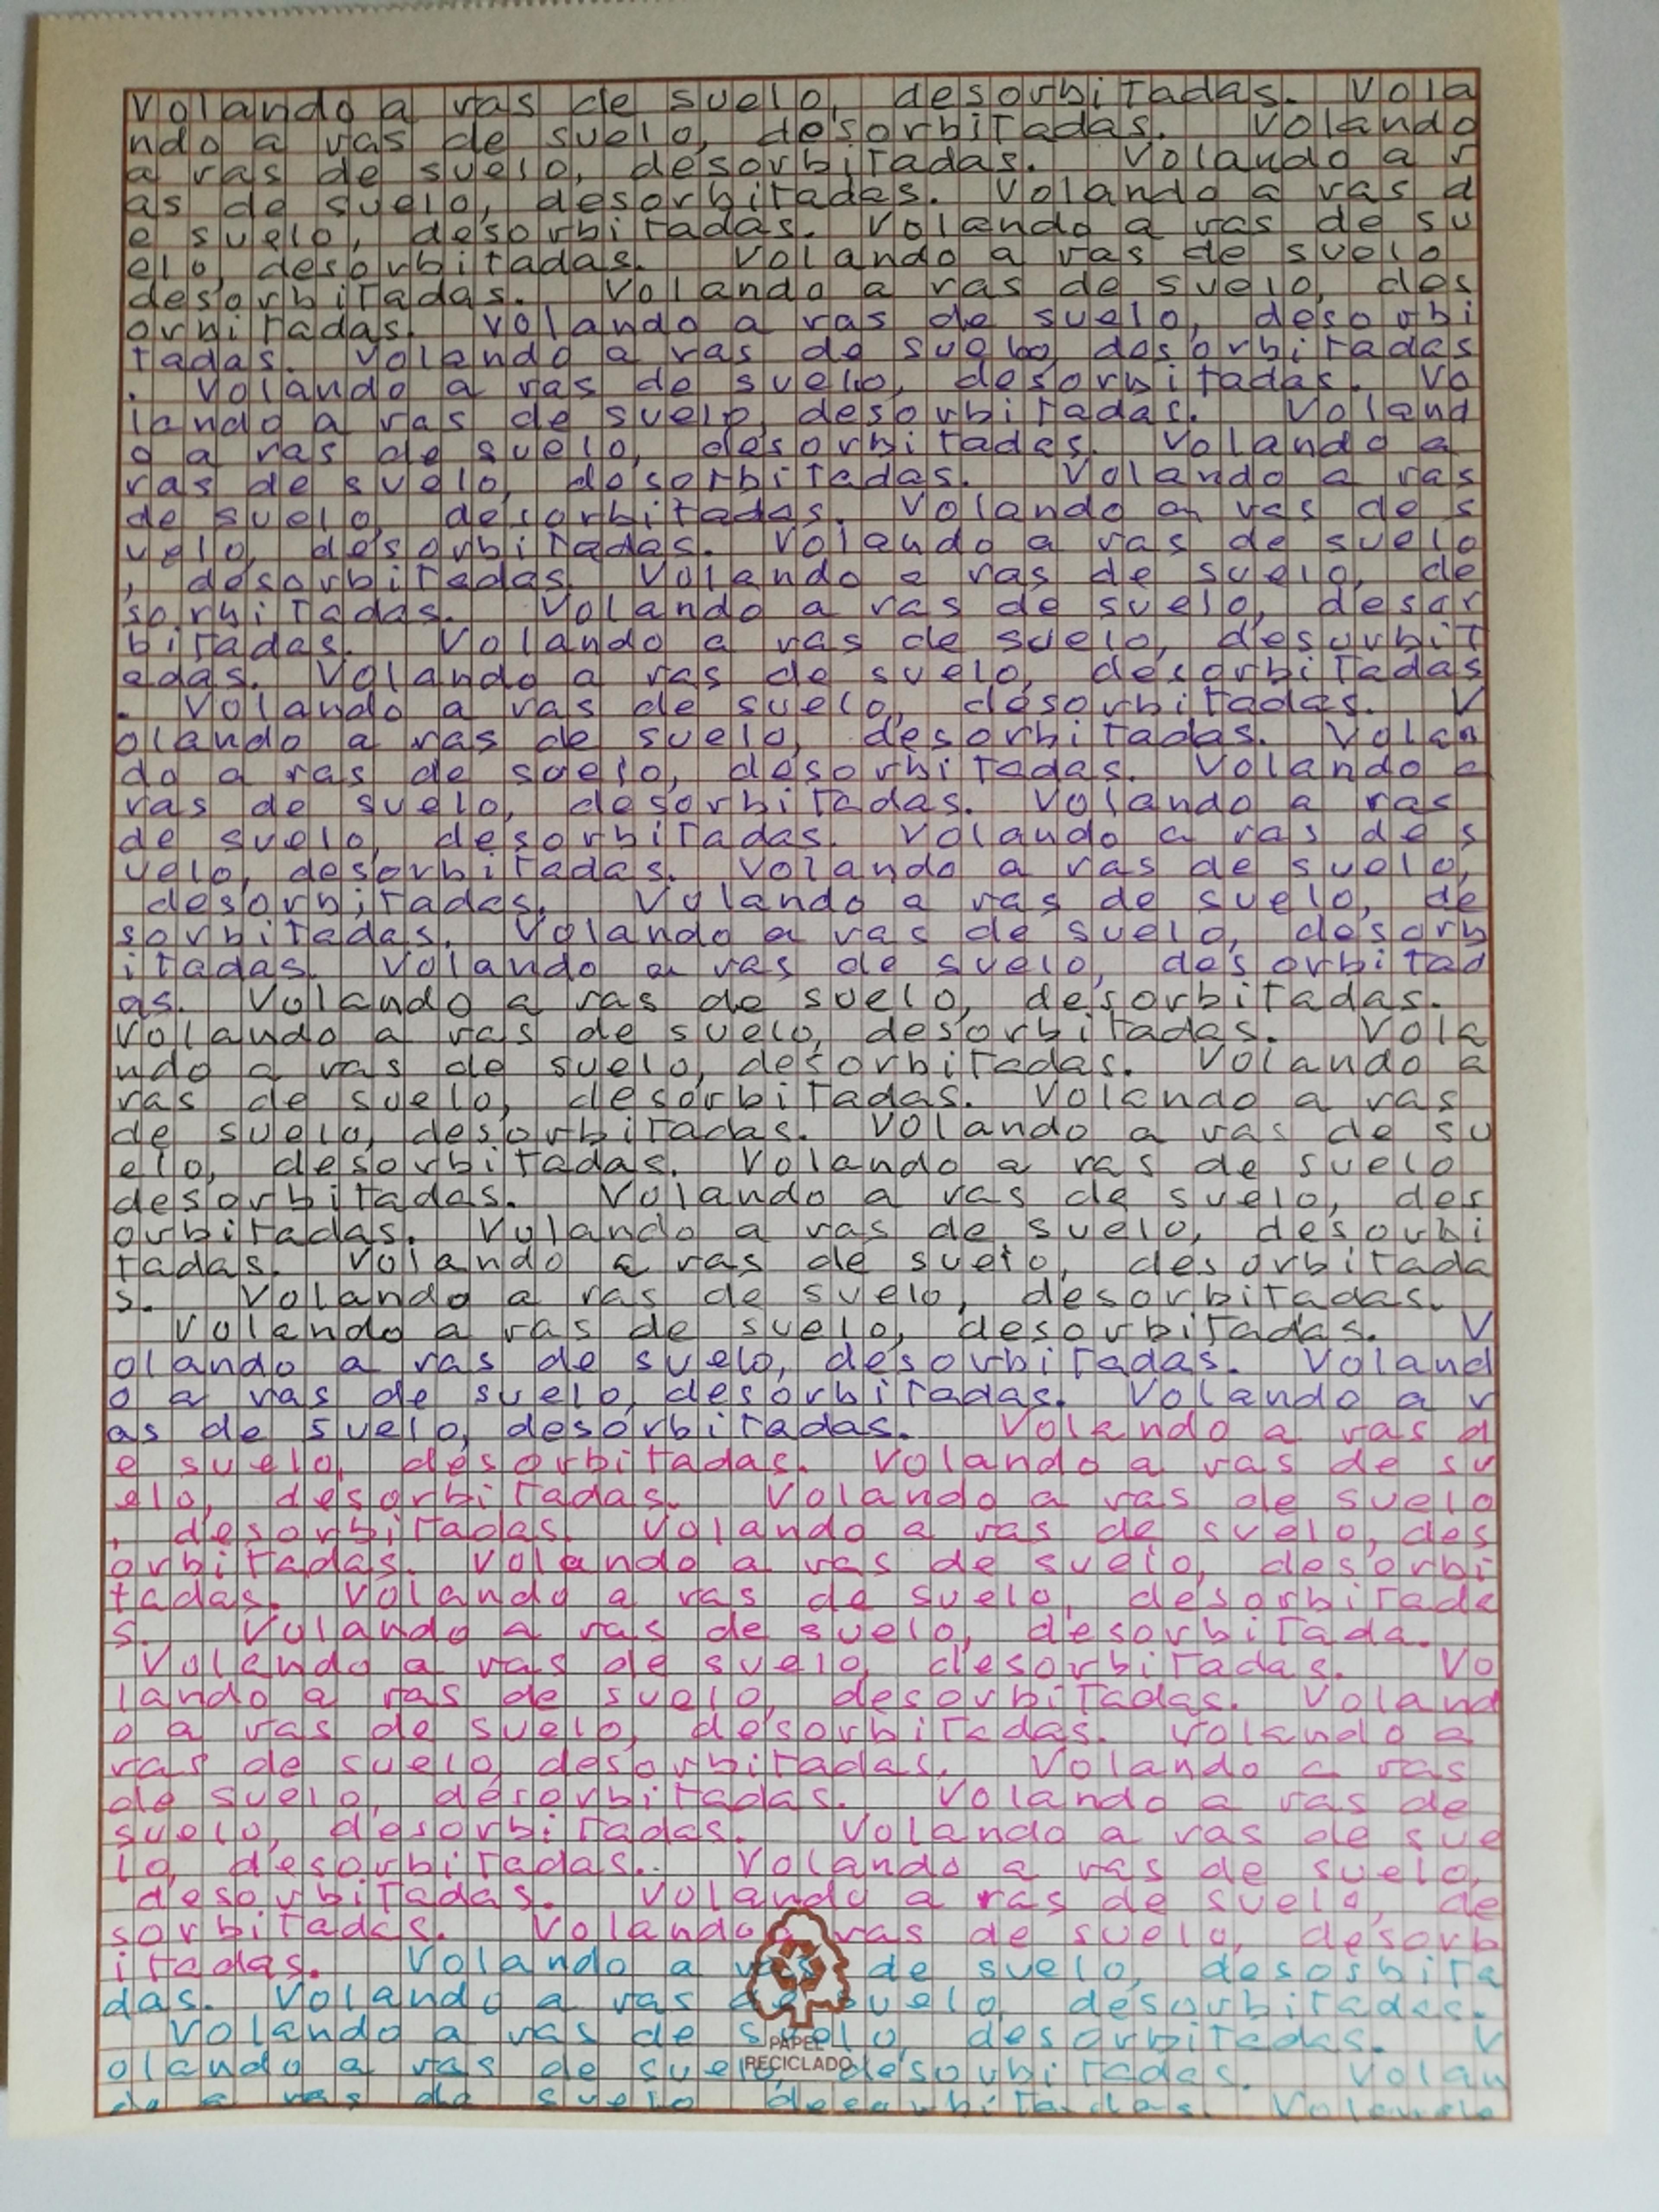 Volando a ras de suelo, desorbitadas. Vola
ndo a ras de suelo, desorbitadas. Volando
a ras de suelo, desorbitadas. Volando a r
as de suelo, desorbitadas. Volando a ras d
e suelo, desorbitadas. Volando a ras de su
elo, desorbitadas. Volando a ras de suelo
desorbitadas. Volando a ras de suelo, des
orbitadas. Volando a ras de suelo, desorbi
tadas. Volando a ras de suelo, desorbitadas
. Volando a ras de suelo, desorbitadas. Vo
lando a ras de suelo, desorbitadas. Voland
o a ras de suelo, desorbitadas. Volando a
ras de suelo, desorbitadas. Volando a ras
de suelo, desorbitadas. Volando a ras de s
uelo, desorbitadas. Volando a ras de suelo
, desorbitadas. Volando a ras de suelo, de
sorbitadas. Volando a ras de suelo, desor
bitadas. Volando a ras de suelo, desorbit
adas. Volando a ras de suelo, desorbitadas
. Volando a ras de suelo, desorbitadas. V
olando a ras de suelo, desorbitadas. Volan
do a ras de suelo, desorbitadas. Volando a
ras de suelo, desorbitadas. Volando a ras
de suelo, desorbitadas. Volando a ras de s
uelo, desorbitadas. Volando a ras de suelo,
desorbitadas. Volando a ras de suelo, de
sorbitadas. Volando a ras de suelo, desorb
itadas. Volando a ras de suelo, desorbitad
as. Volando a ras de suelo, desorbitadas.
Volando a ras de suelo, desorbitadas. Vola
ndo a ras de suelo, desorbitadas. Volando a
ras de suelo, desorbitadas. Volando a ras
de suelo, desorbitadas. Volando a ras de su
elo, desorbitadas. Volando a ras de suelo
desorbitadas. Volando a ras de suelo, des
orbitadas. Volando a ras de suelo, desorbi
tadas. Volando a ras de suelo, desorbitada
s. Volando a ras de suelo, desorbitadas.
Volando a ras de suelo, desorbitadas. V
olando a ras de suelo, desorbitadas. Voland
o a ras de suelo, desorbitadas. Volando a r
as de suelo, desorbitadas. Volando a ras d
e suelo, desorbitadas. Volando a ras de su
elo, desorbitadas. Volando a ras de suelo
, desorbitadas. Volando a ras de suelo, des
orbitadas. Volando a ras de suelo, desorbi
tadas. Volando a ras de suelo, desorbitada
s. Volando a ras de suelo, desorbitada.
Volando a ras de suelo, desorbitadas. Vo
lando a ras de suelo, desorbitadas. Voland
o a ras de suelo, desorbitadas. Volando a
ras de suelo, desorbitadas. Volando a ras
de suelo, desorbitadas. Volando a ras de
suelo, desorbitadas. Volando a ras de sue
lo, desorbitadas. Volando a ras de suelo,
desorbitadas. Volando a ras de suelo, de
sorbitadas. Volando a ras de suelo, desorb
itadas. Volando a ras de suelo, desorbita
das. Volando a ras de suelo, desorbitadas.
Volando a ras de suelo, desorbitadas. V
olando a ras de suelo, desorbitadas. Volan
do a ras de suelo desorbitadas. Volando
PAPEL
RECICLADO